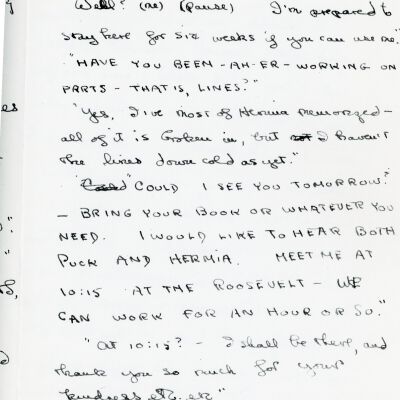 Well? (me) (pause) I'm prepared to
stay here for six weeks if you can use me."
"HAVE YOU BEEN - AH - ER - WORKING ON
PARTS - THAT IS, LINES?"
"Yes, I've most of Hermia memorized -
all of it is broken in, but I haven't
the lines down cold as yet."
"COULD I SEE YOU TOMORROW?
- BRING YOUR BOOK OR WHATEVER YOU
NEED. I WOULD LIKE TO HEAR BOTH
PUCK AND HERMIA. MEET ME AT
10:15 AT THE ROOSEVELT - WE
CAN WORK FOR AN HOUR OR SO."
"At 10:15? - I shall be there, and
thank you so much for your
kindness etc. etc"